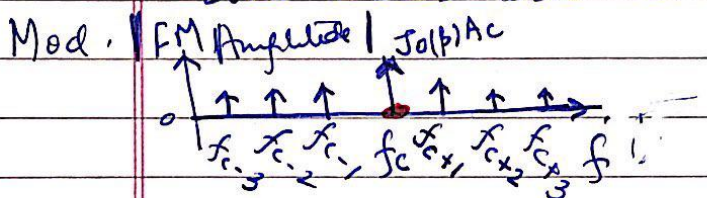 Mod. |FM Amplitude| J₀(β)Ac
0 fc-3 fc-2 fc-1 fc fc+1 fc+2 fc+3 f